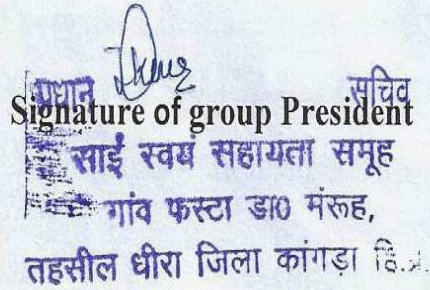 प्रधान सचिव
Signature of group President
साई स्वयं सहायता समूह
गांव फस्टा डा0 मंरूह,
तहसील धीरा जिला कांगड़ा हि.प्र.